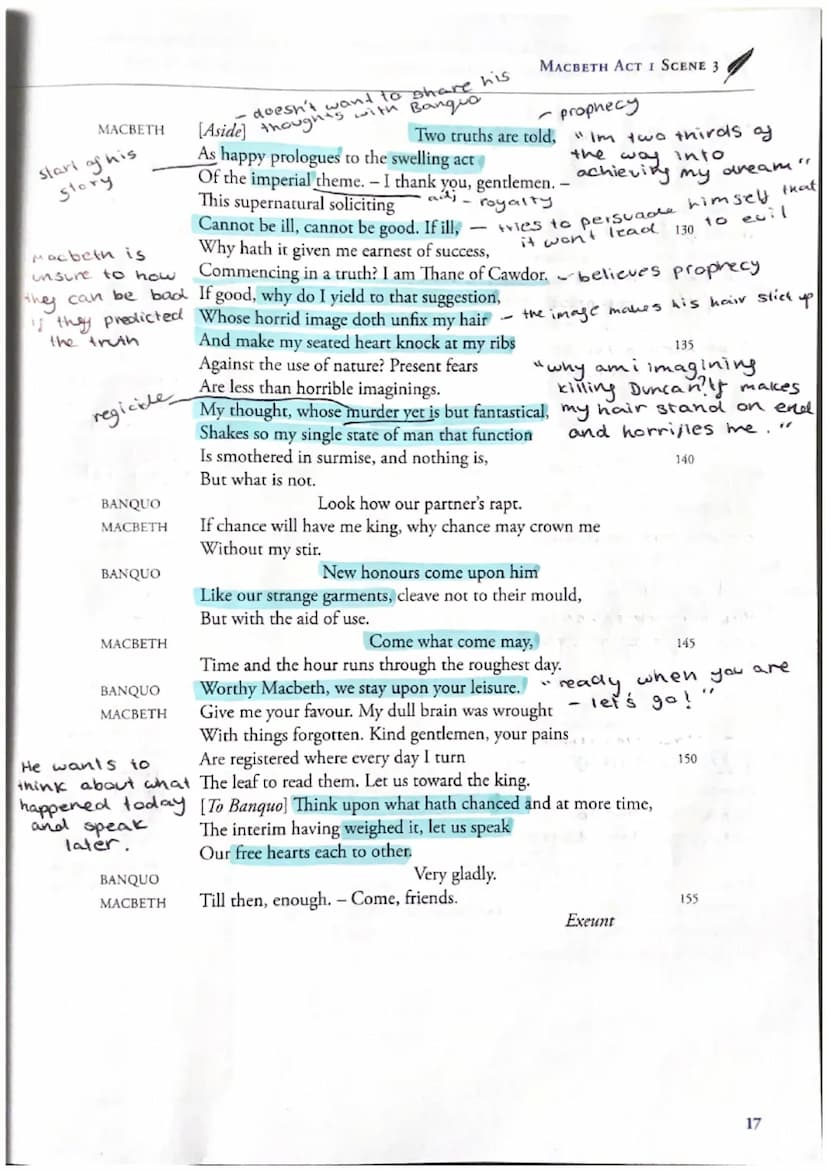 MACBETH ACT 1 SCENE 3
- doesn't want to share his
thoughts with Banquo
- prophecy
MACBETH [Aside] Two truths are told,
"Im two thirds of
the way into
achieving my dream"
As happy prologues to the swelling act
start of his
story
Of the imperial theme. – I thank you, gentlemen. –
adj - royalty
This supernatural soliciting
Cannot be ill, cannot be good. If ill, 130
- tries to persuade himself that
it wont lead to evil
Why hath it given me earnest of success,
Macbeth is
unsure to how
they can be bad
if they predicted
the truth
Commencing in a truth? I am Thane of Cawdor.
- believes prophecy
If good, why do I yield to that suggestion,
Whose horrid image doth unfix my hair
- the image makes his hair stick up
And make my seated heart knock at my ribs 135
Against the use of nature? Present fears
"why am i imagining
killing Duncan? It makes
my hair stand on end
and horrifies me."
Are less than horrible imaginings.
regicide
My thought, whose murder yet is but fantastical,
Shakes so my single state of man that function
Is smothered in surmise, and nothing is, 140
But what is not.
BANQUO Look how our partner's rapt.
MACBETH If chance will have me king, why chance may crown me
Without my stir.
BANQUO New honours come upon him
Like our strange garments, cleave not to their mould,
But with the aid of use.
MACBETH Come what come may, 145
Time and the hour runs through the roughest day.
BANQUO Worthy Macbeth, we stay upon your leisure.
"ready when you are
- let's go!"
MACBETH Give me your favour. My dull brain was wrought
With things forgotten. Kind gentlemen, your pains
Are registered where every day I turn 150
The leaf to read them. Let us toward the king.
He wants to
think about what
happened today
and speak
later.
[To Banquo] Think upon what hath chanced and at more time,
The interim having weighed it, let us speak
Our free hearts each to other.
BANQUO Very gladly.
MACBETH Till then, enough. – Come, friends. 155
Exeunt
17